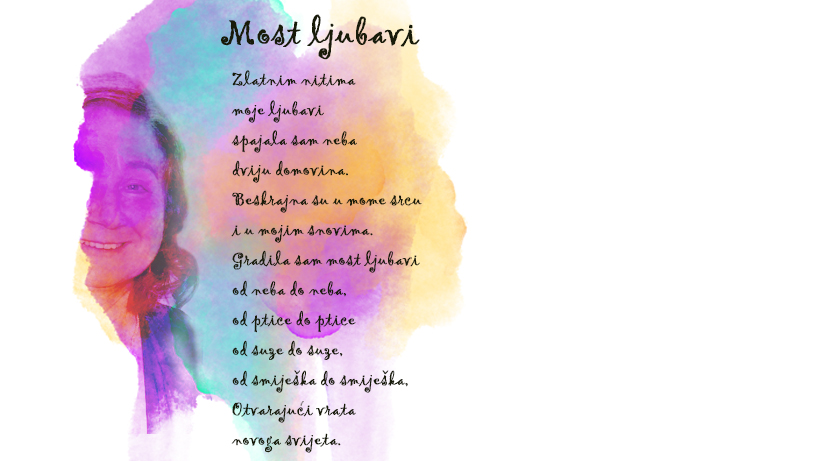 Most ljubavi
Zlatnim nitima
moje ljubavi
spajala sam neba
dviju domovina.
Beskrajna su u mome srcu
i u mojim snovima.
Gradila sam most ljubavi
od neba do neba,
od ptice do ptice
od suze do suze,
od smiješka do smiješka,
Otvarajući vrata
novoga svijeta.